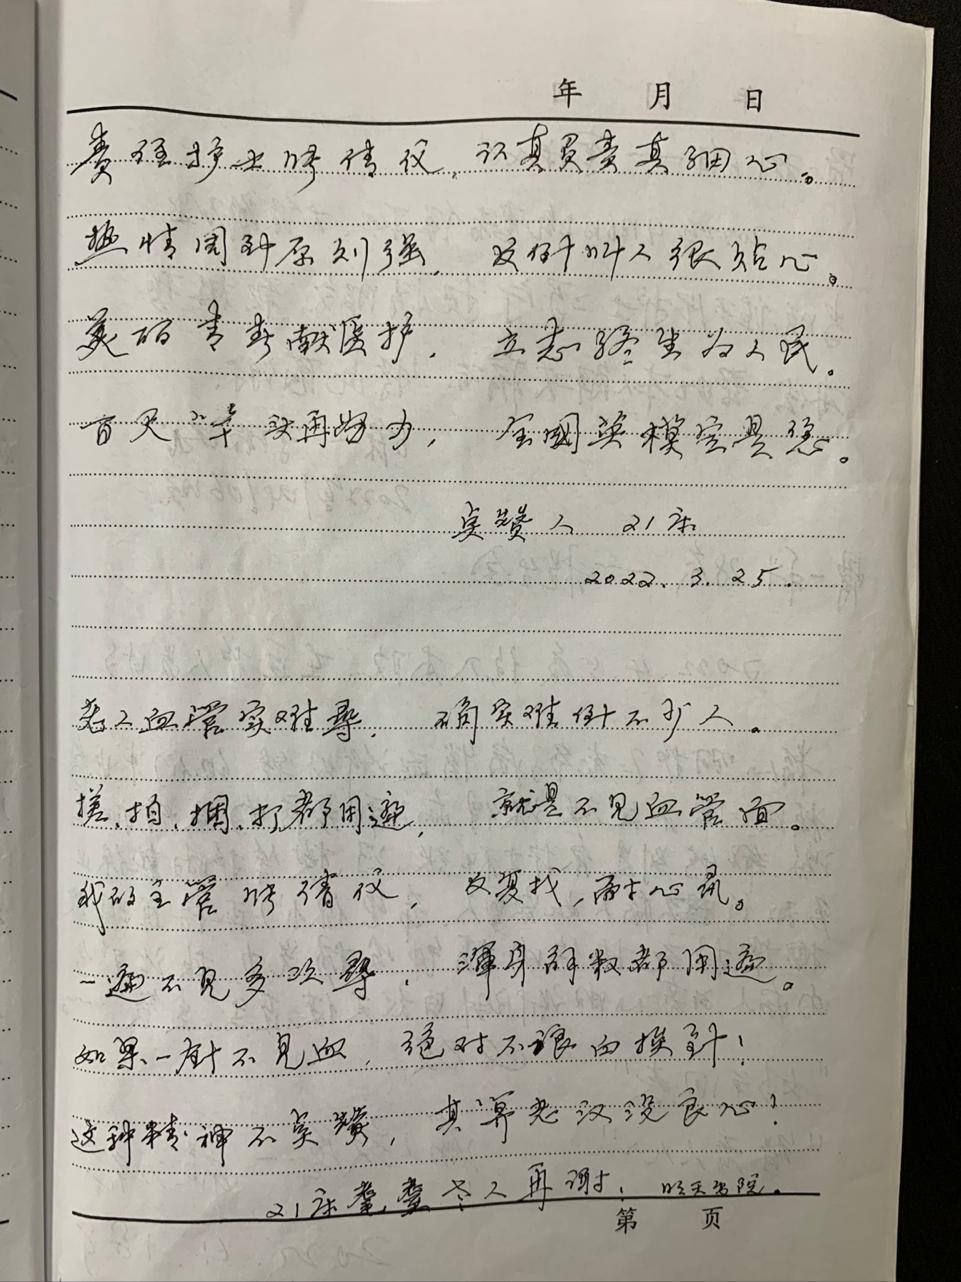 年 月 日
责任护士 倩仪，认真负责真细心。
热情周到原则强，发针叫人很贴心。
美的青春献医护，立志终生为人民。
百尺竿头再努力，全国英模定是您。
点赞人 21床
2022.3.25.
老人血管实难寻，确实难倒不少人。
搓、拍、捆、打都用遍，就是不见血管面。
我的主管 倩仪，反复找，耐心寻。
一遍不见多次寻，浑身解数都用遍。
如果一针不见血，绝对不让再换针！
这种精神不点赞，真算老汉没良心！
21床 老人再谢！明天出院。
第 页